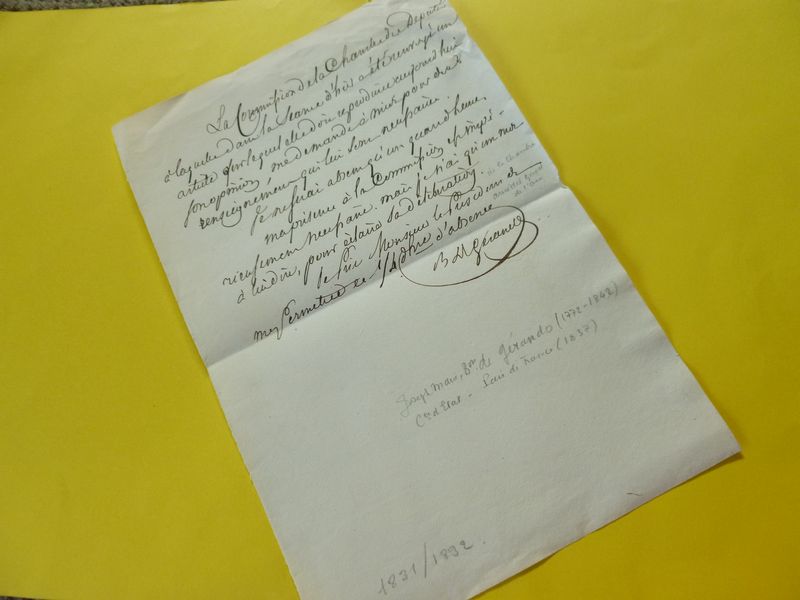 La Commission de la Chambre des Députés
à laquelle dans la séance d'hier a été renvoyé un
article sur lequel elle doit reproduire aujourd'hui
son opinion, me demande à midi pour des
renseignements qui lui sont nécessaires.
Je ne serai absent qu'un quart d'heure,
ma présence à la Commission est impé-
rieusement nécessaire. mais je n'ai qu'un mot
à lui dire, pour éclairer sa délibération.
Je prie Monsieur le Président de
me permettre ce d'absence
de la Chambre
B De Gérando
Joseph Marie, Bon de Gérando (1772-1842)
Cer d'Etat - Pair de France (1837)
1831/1832.